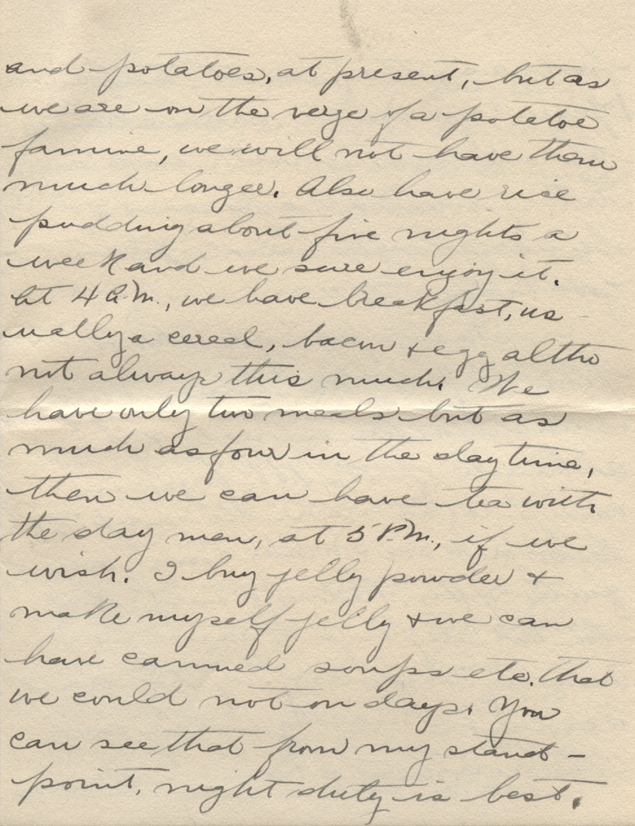 and potatoes, at present, but as
we are on the verge of a potatoe
famine, we will not have them
much longer. Also have rice
pudding about five nights a
week and we sure enjoy it.
At 4 A.M., we have breakfast, us-
ually a cereal, bacon + egg altho
not always this much. We
have only two meals but as
much as four in the daytime,
then we can have tea with
the day men, at 5 P.M., if we
wish. I buy jelly powder +
make myself jelly + we can
have canned soups etc. that
we could not on days. You
can see that from my stand-
point, night duty is best.